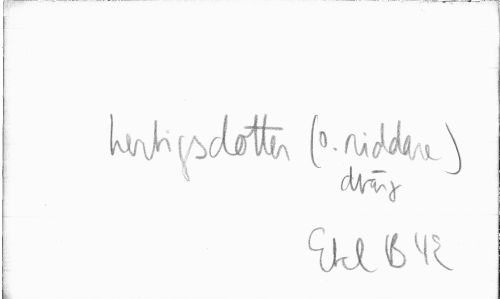 hertigsdotter (o. riddare)
dräng
Etel B 42